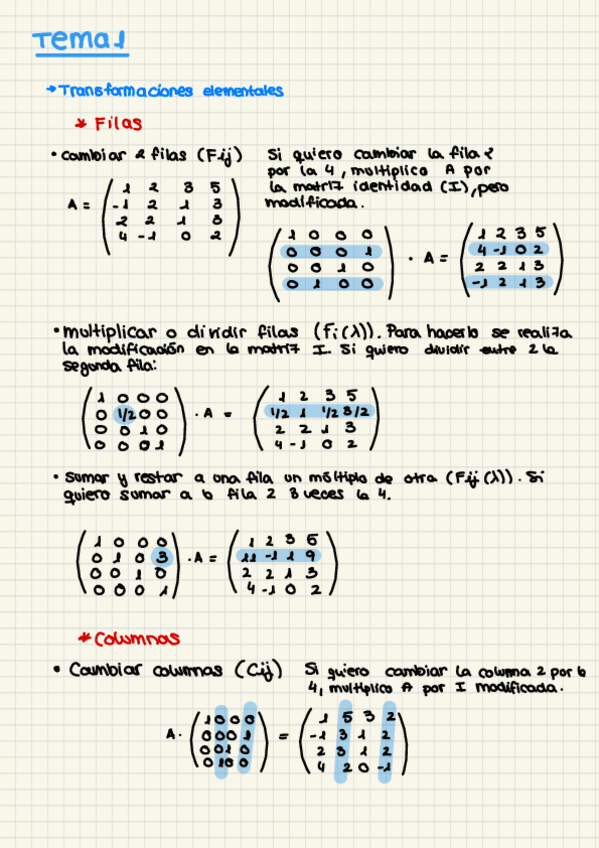 Tema 1
→ Transformaciones elementales
* Filas
• Cambiar 2 filas (Fij)
Si quiero cambiar la fila 2
por la 4, multiplico A por
la matriz identidad (I), pero
modificada.
A = ( 1 2 3 5
-1 2 1 3
2 2 1 3
4 -1 0 2 )
( 1 0 0 0
0 0 0 1
0 0 1 0
0 1 0 0 )
· A =
( 1 2 3 5
4 -1 0 2
2 2 1 3
-1 2 1 3 )
• multiplicar o dividir filas (Fi(λ)). Para hacerlo se realiza
la modificación en la matriz I. Si quiero dividir entre 2 la
segunda fila:
( 1 0 0 0
0 1/2 0 0
0 0 1 0
0 0 0 1 )
· A =
( 1 2 3 5
1/2 1 1/2 3/2
2 2 1 3
4 -1 0 2 )
• Sumar y restar a una fila un múltiplo de otra (Fij(λ)). Si
quiero sumar a la fila 2 3 veces la 4.
( 1 0 0 0
0 1 0 3
0 0 1 0
0 0 0 1 )
· A =
( 1 2 3 5
11 -1 1 9
2 2 1 3
4 -1 0 2 )
* Columnas
• Cambiar columnas (Cij)
Si quiero cambiar la columna 2 por la
4, multiplico A por I modificada.
A ·
( 1 0 0 0
0 0 0 1
0 0 1 0
0 1 0 0 )
=
( 1 5 3 2
-1 3 1 2
2 3 1 2
4 2 0 -1 )